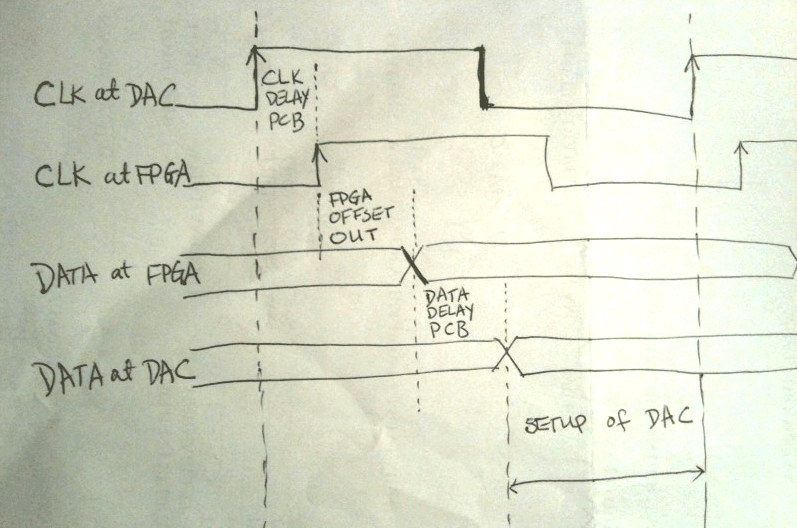 CLK at DAC
CLK
DELAY
PCB
CLK at FPGA
FPGA
OFFSET
OUT
DATA at FPGA
DATA
DELAY
PCB
DATA at DAC
SETUP of DAC